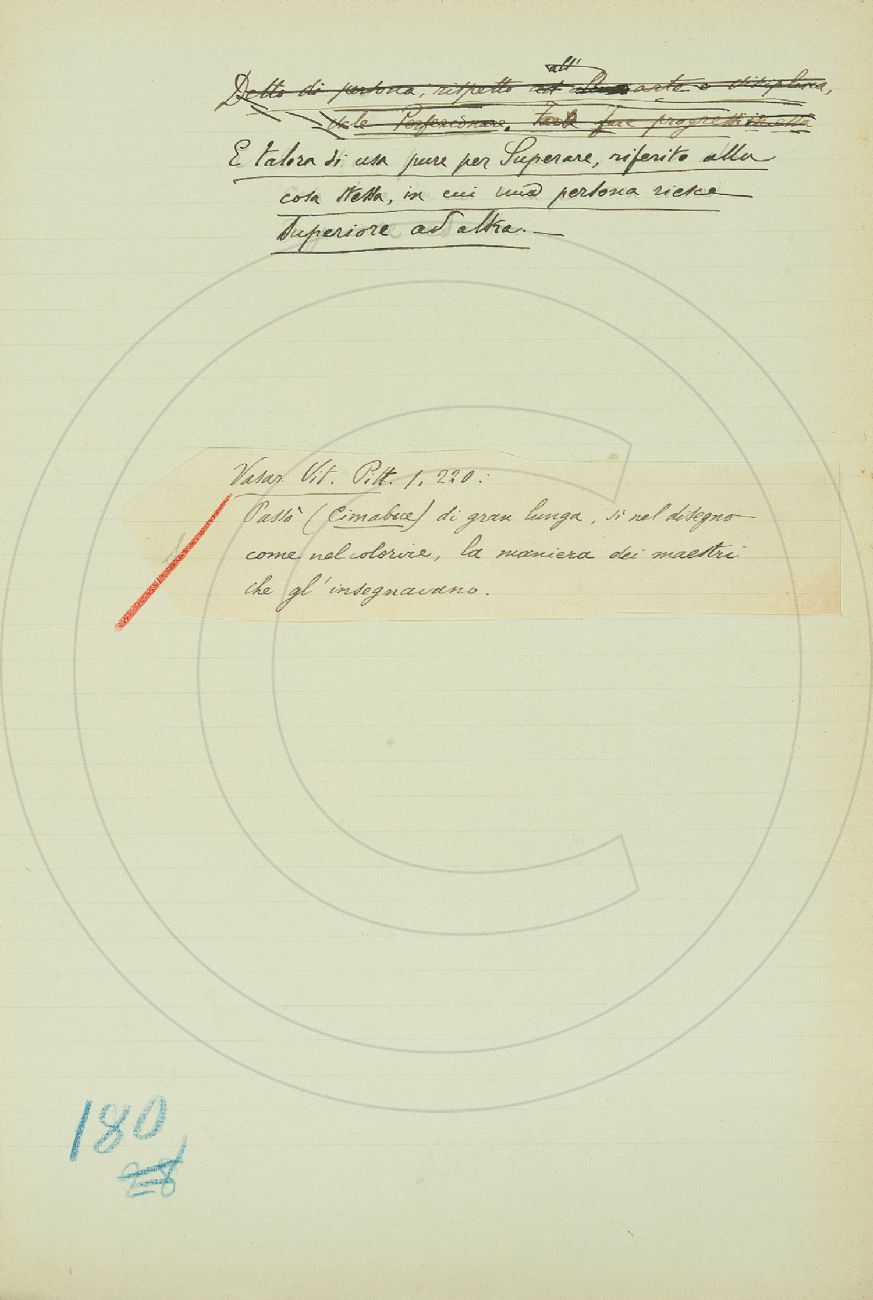 all'
Detto di persona, rispetto arte e disciplina,
vale Perfezionare, fare progressi in essa
E talora si usa pure per Superare, riferito alla
cosa stessa, in cui una persona riesce
superiore ad altra. —
Vasar. Vit. Pitt. 1, 220:
Passò (Cimabue) di gran lunga, sì nel disegno
come nel colorire, la maniera dei maestri
che gl'insegnavano.
180
28